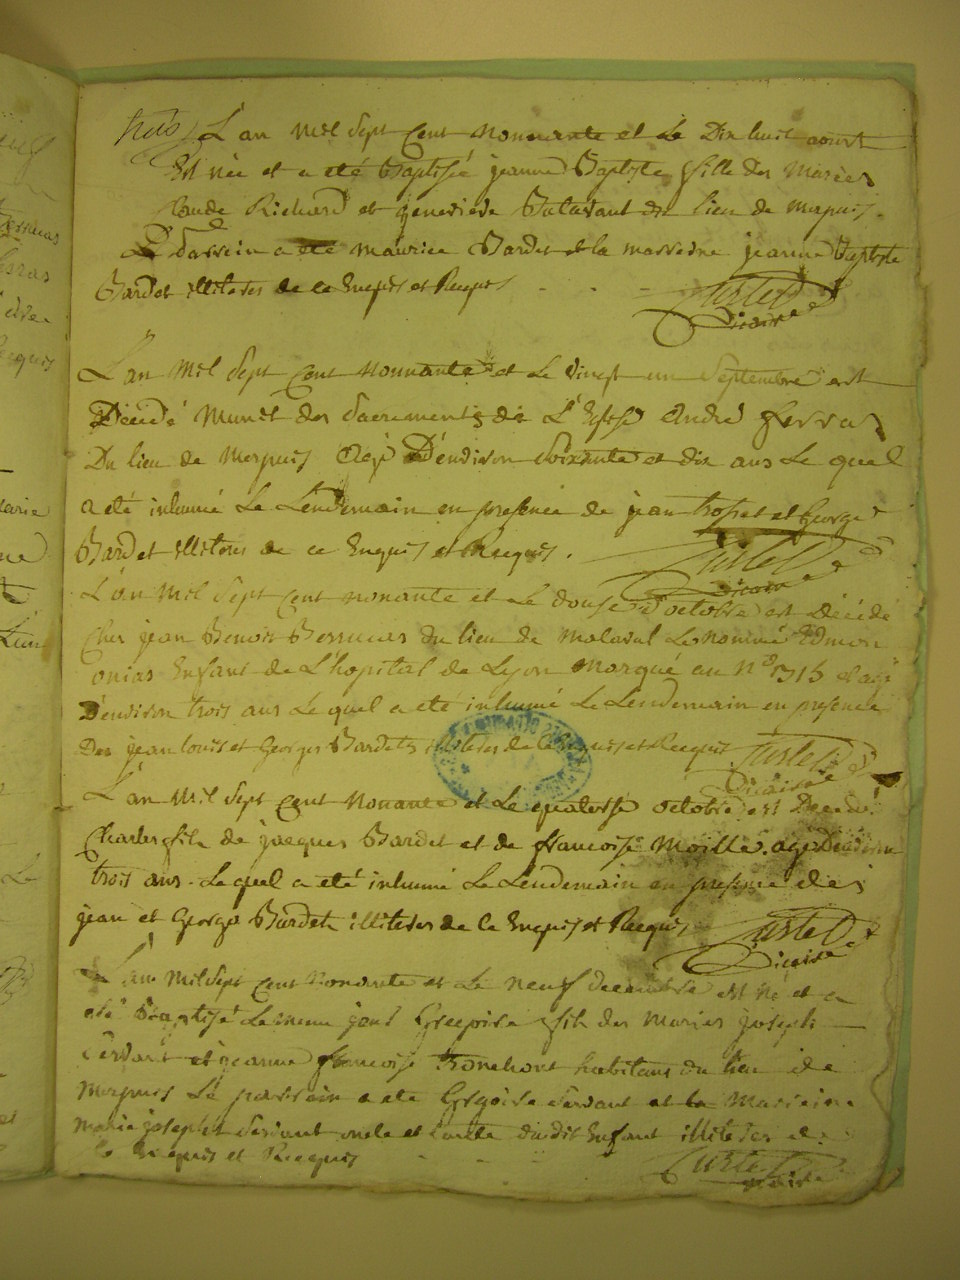 trois L'an Mil Sept Cent Nonnante et Le Dix huit aoust
Est née et a été Baptisée jeanne Baptiste fille des Mariés
Claude Richard et genevieve du lieu de
Le Parrein a été Maurice Bardet et la marreine jeanne Baptiste
Bardet illiteres de ce Enquis et Recquis
Curtet
Vicaire
L'an Mil Sept Cent Nonnante et Le Vingt un Septembre est
Décédé Munit des Sacrements de L'Eglise André Ferras
Du lieu de Agé D'environ Soixante et dix ans Le quel
a été inhumé Le Lendemain en presence de jean et George
Bardet illiteres de ce Enquis et Recquis.
Curtet
Vicaire
L'an Mil Sept Cent nonante et Le douse d'octobre est décédé
Chez jean Benoit du lieu de Le nommé
Enfant de L'hopital de Lyon Marqué au N°
D'environ trois ans Le quel a été inhumé Le Lendemain en presence
Des jean Louis et Georges Bardets illiteres de ce Enquis et Recquis Curtet
Vicaire
L'an Mil Sept Cent Nonante et Le quatorse octobre est Décédé
Charles fils de jacques Bardet et de francoise Moille. agé D'environ
trois ans. Le quel a été inhumé Le Lendemain en presence des
jean et George Bardets illiteres de ce Enquis et Recquis
Curtet
Vicaire
L'an Mil Sept Cent Nonante et Le Neuf decembre est né et a
été Baptisé Le meme jour Gregoire fils des Mariés joseph
Servant et jeanne francoise habitans du lieu de
Le parrein a été Gregoire Servant et la Marreine
Marie josephte Servant oncle et tante dudit Enfant illiteres et de
ce Enquis et Recquis
Curtet